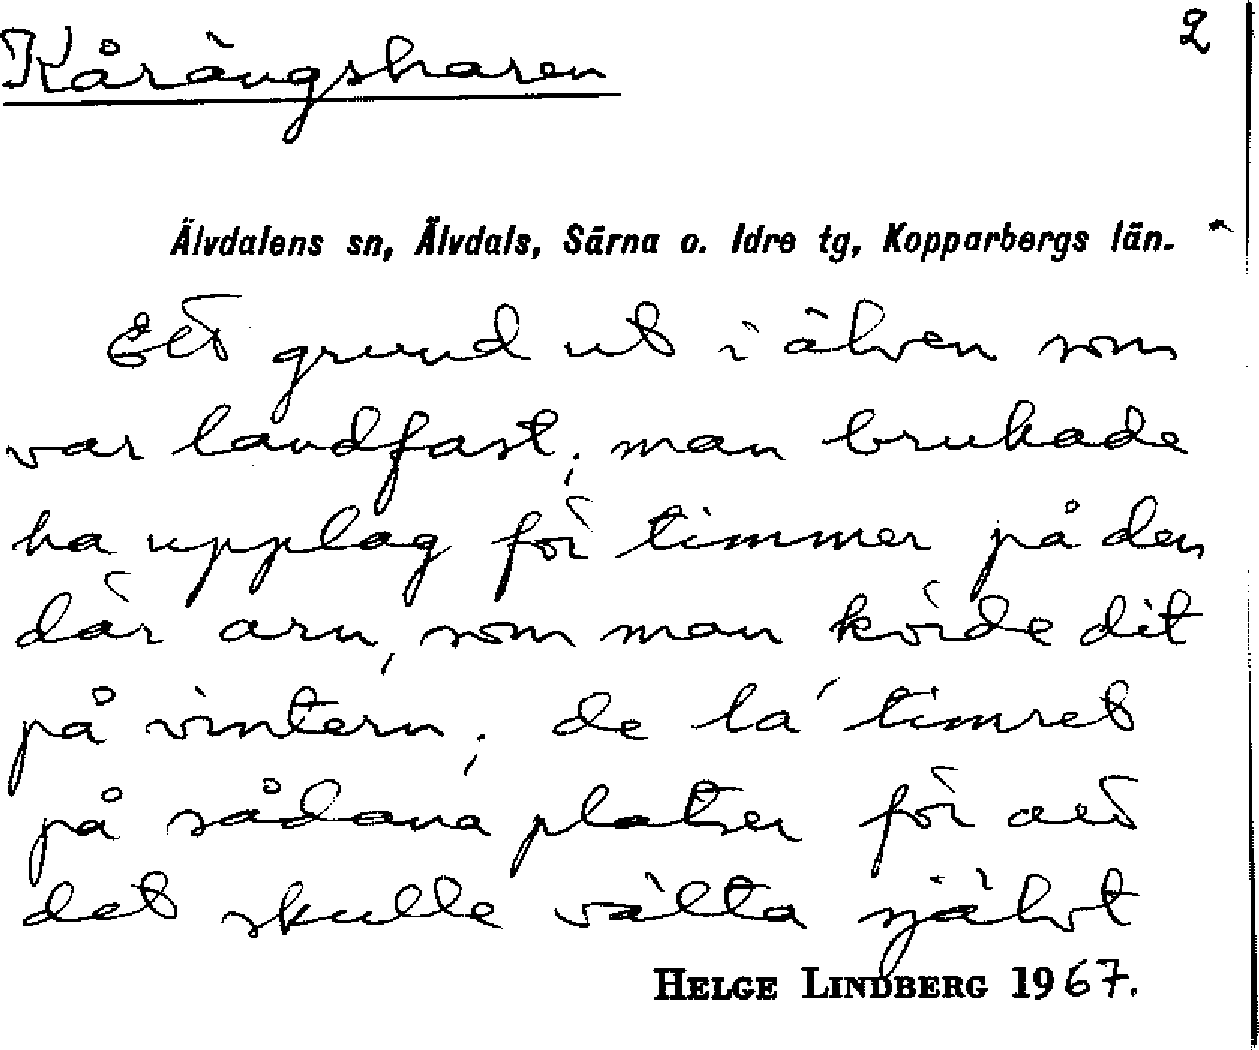 2
Kårängsharen
Älvdalens sn, Älvdals, Särna o. Idre tg, Kopparbergs län.
Ett grund ut i älven som
var landfast; man brukade
ha upplag för timmer på den
där arn, som man körde dit
på vintern; de la' timret
på sådana platser för att
det skulle välta självt
HELGE LINDBERG 1967.